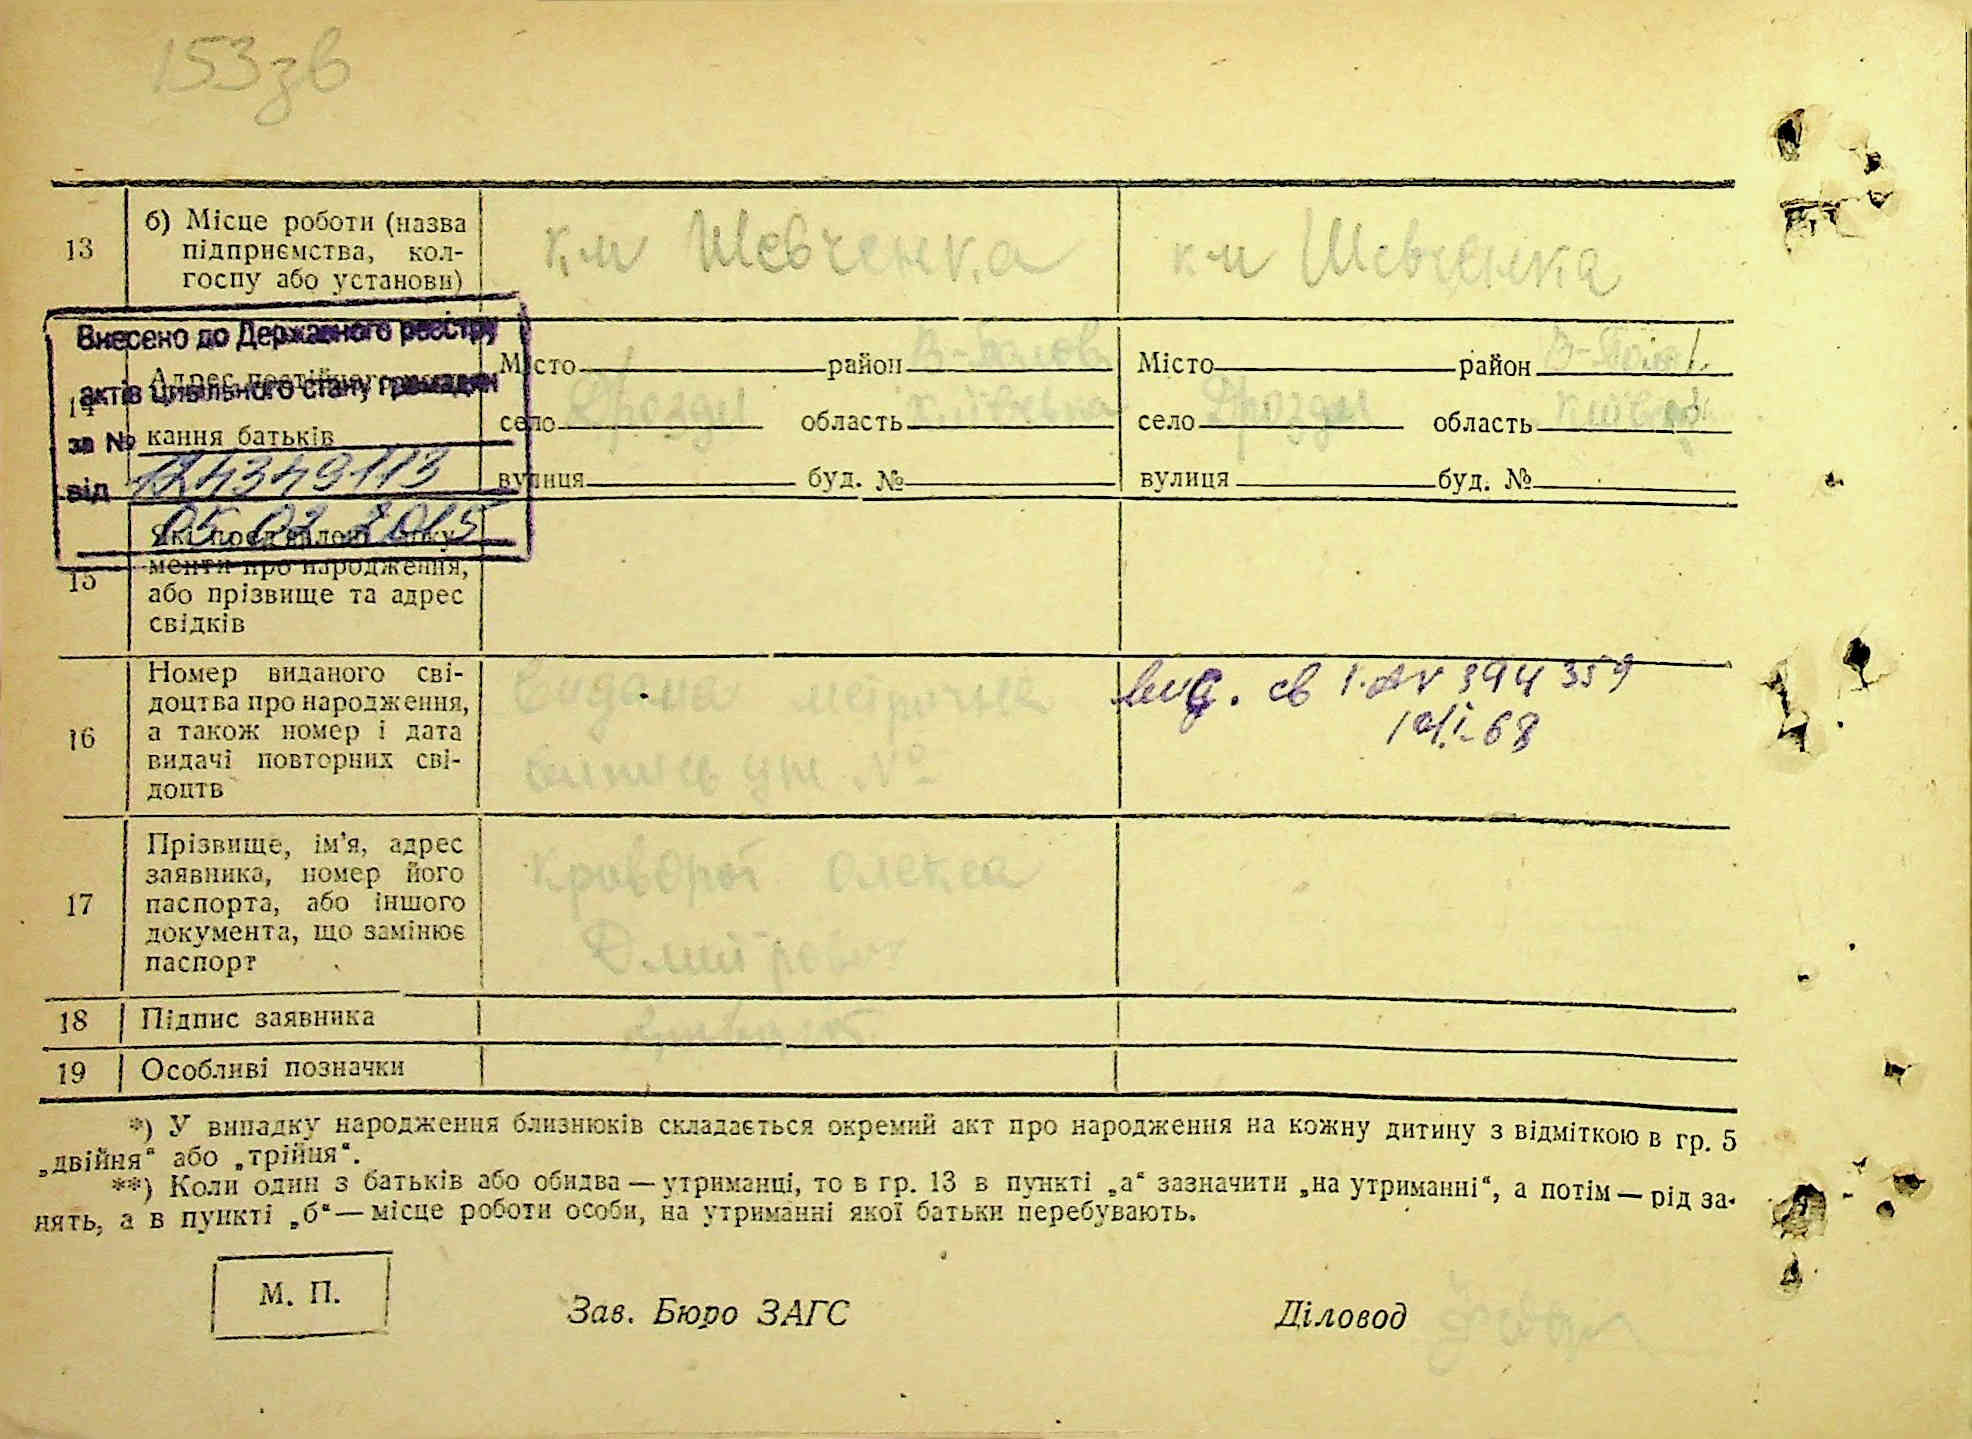 153зв
13
б) Місце роботи (назва
підприємства, кол-
госпу або установи)
к.ім Шевченка
к-м Шевченка
Внесено до Державного реєстру
актів цивільного стану громадян
за №
124349113
від
05.02.2015
14
кання батьків
Місто район В-Полов
село Дрозди область Київська
вулиця буд. №
Місто район В-Полов
село Дрозди область Київська
вулиця буд. №
15
менти про народження,
або прізвище та адрес
свідків
16
Номер виданого сві-
доцтва про народження,
а також номер і дата
видачі повторних сві-
доцтв
Видана метрична
випись УЖ №
вид. св I-АУ 394359
68
17
Прізвище, ім'я, адрес
заявника, номер його
паспорта, або іншого
документа, що замінює
паспорт
Олекса
Дмитрович
18 Підпис заявника
19 Особливі позначки
*) У випадку народження близнюків складається окремий акт про народження на кожну дитину з відміткою в гр. 5
„двійня“ або „трійня“.
**) Коли один з батьків або обидва — утриманці, то в гр. 13 в пункті „а“ зазначити „на утриманні“, а потім — рід за-
нять, а в пункті „б“ — місце роботи особи, на утриманні якої батьки перебувають.
М. П.
Зав. Бюро ЗАГС
Діловод